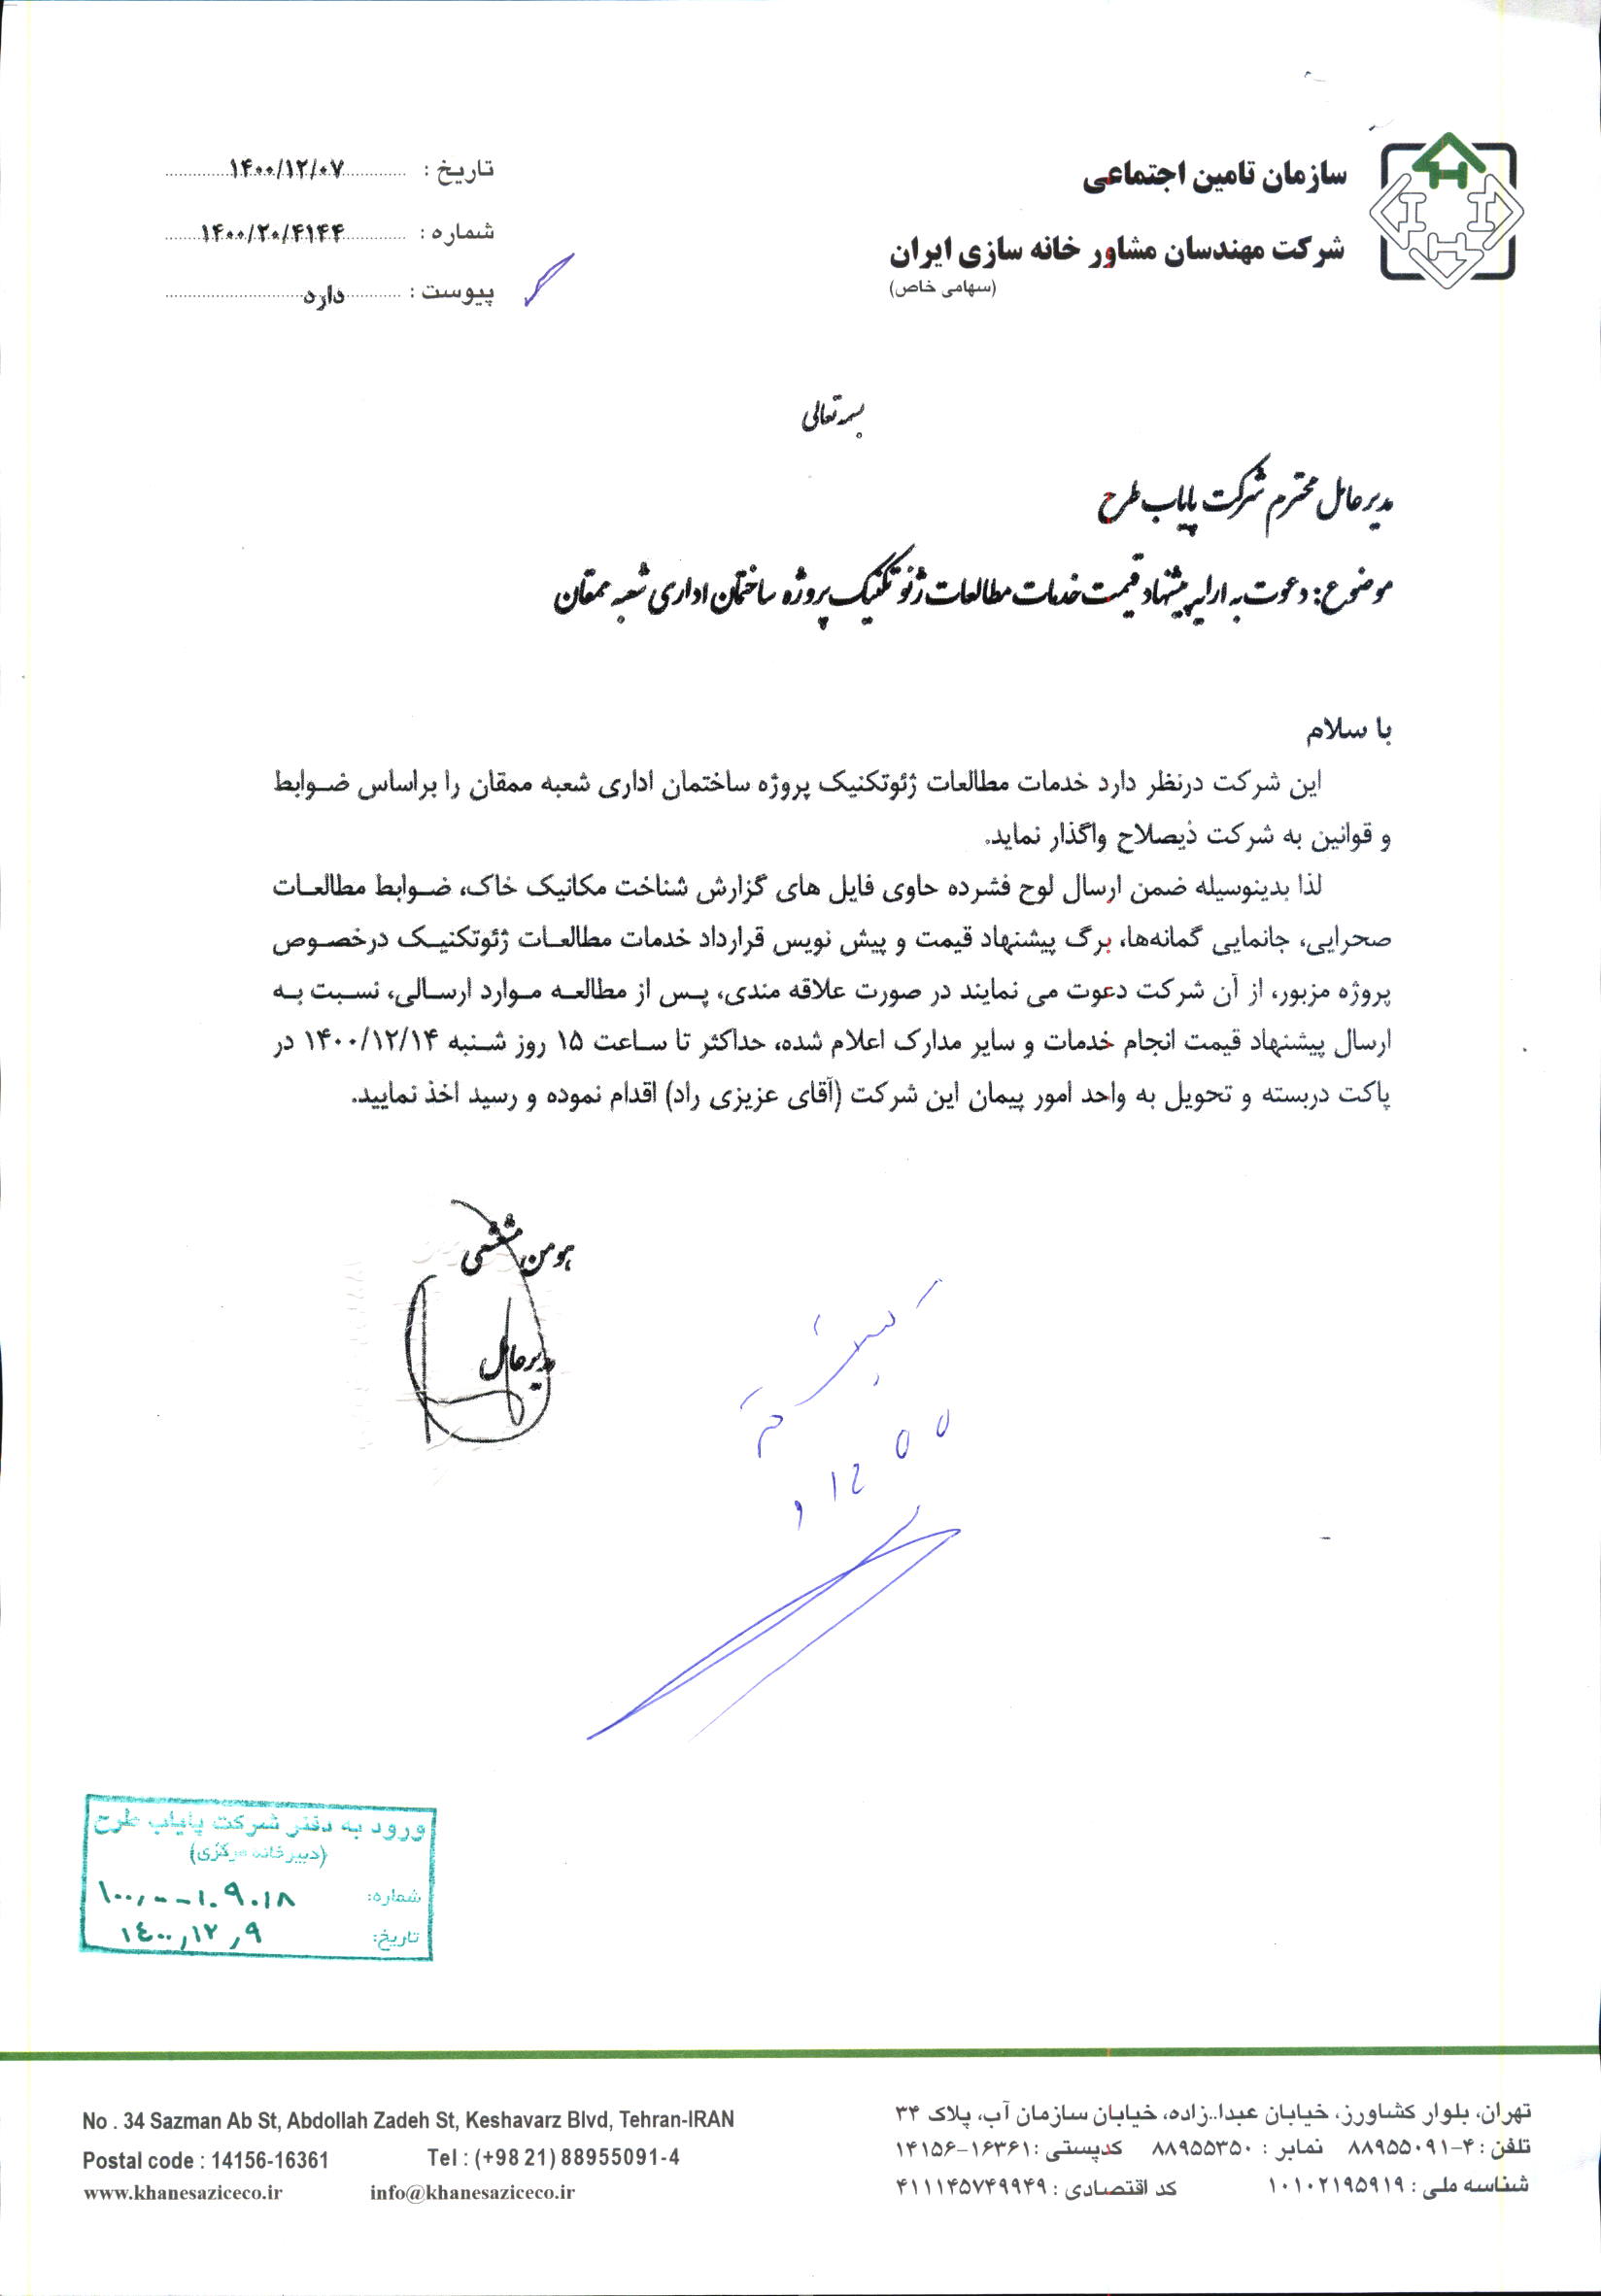 سازمان تامین اجتماعی
شرکت مهندسان مشاور خانه سازی ایران
(سهامی خاص)
تاریخ : ۱۴۰۰/۱۲/۰۷
شماره : ۱۴۰۰/۲۰/۴۱۴۴
پیوست : دارد
بسمه تعالی
مدیرعامل محترم شرکت پایاب طرح
موضوع: دعوت به ارایه پیشنهاد قیمت خدمات مطالعات ژئوتکنیک پروژه ساختمان اداری شعبه ممقان
با سلام
این شرکت درنظر دارد خدمات مطالعات ژئوتکنیک پروژه ساختمان اداری شعبه ممقان را براساس ضوابط
و قوانین به شرکت ذیصلاح واگذار نماید.
لذا بدینوسیله ضمن ارسال لوح فشرده حاوی فایل های گزارش شناخت مکانیک خاک، ضوابط مطالعات
صحرایی، جانمایی گمانه‌ها، برگ پیشنهاد قیمت و پیش نویس قرارداد خدمات مطالعات ژئوتکنیک درخصوص
پروژه مزبور، از آن شرکت دعوت می نمایند در صورت علاقه مندی، پس از مطالعه موارد ارسالی، نسبت به
ارسال پیشنهاد قیمت انجام خدمات و سایر مدارک اعلام شده، حداکثر تا ساعت ۱۵ روز شنبه ۱۴۰۰/۱۲/۱۴ در
پاکت دربسته و تحویل به واحد امور پیمان این شرکت (آقای عزیزی راد) اقدام نموده و رسید اخذ نمایید.
هومن مشفقی
مدیرعامل
ورود به دفتر شرکت پایاب طرح
(دبیرخانه مرکزی)
شماره: ۱۰۰,۰۰-۱.۹.۱۸
تاریخ: ۱۴۰۰,۱۲,۹
تهران، بلوار کشاورز، خیابان عبدا..زاده، خیابان سازمان آب، پلاک ۳۴
تلفن : ۴-۸۸۹۵۵۰۹۱ نمابر : ۸۸۹۵۵۳۵۰ کدپستی : ۱۶۳۶۱-۱۴۱۵۶
شناسه ملی : ۱۰۱۰۲۱۹۵۹۱۹ کد اقتصادی : ۴۱۱۱۴۵۷۴۹۹۴۹
No . 34 Sazman Ab St, Abdollah Zadeh St, Keshavarz Blvd, Tehran-IRAN
Postal code : 14156-16361 Tel : (+98 21) 88955091-4
www.khanesaziceco.ir info@khanesaziceco.ir